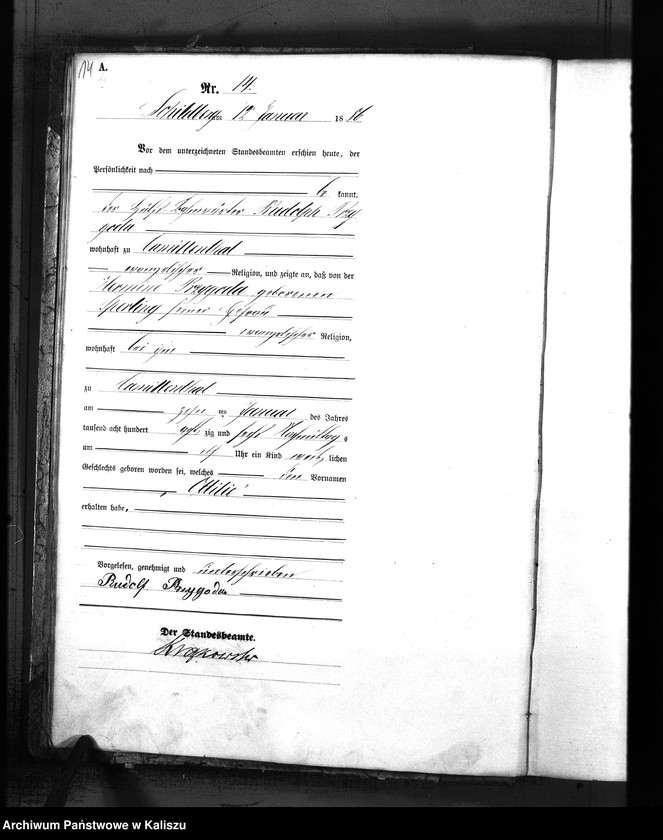 14 A.
Nr. 14.
Schildberg am 12 Januar 18 86.
Vor dem unterzeichneten Standesbeamten erschien heute, der
Persönlichkeit nach
be kannt,
der Hülfs-Bahnwärter Rudolph Przy-
goda
wohnhaft zu Camillenthal
evangelischer Religion, und zeigte an, daß von der
Hermine Przygoda geborenen
Sperling seiner Ehefrau
evangelischer Religion,
wohnhaft bei ihm
zu Camillenthal
am zehn ten Januar des Jahres
tausend acht hundert acht zig und sechs Vormittag s
um elf Uhr ein Kind weib lichen
Geschlechts geboren worden sei, welches den Vornamen
„Ottilie“
erhalten habe.
Vorgelesen, genehmigt und unterschrieben
Rudolf Przygoda
Der Standesbeamte.
Archiwum Państwowe w Kaliszu